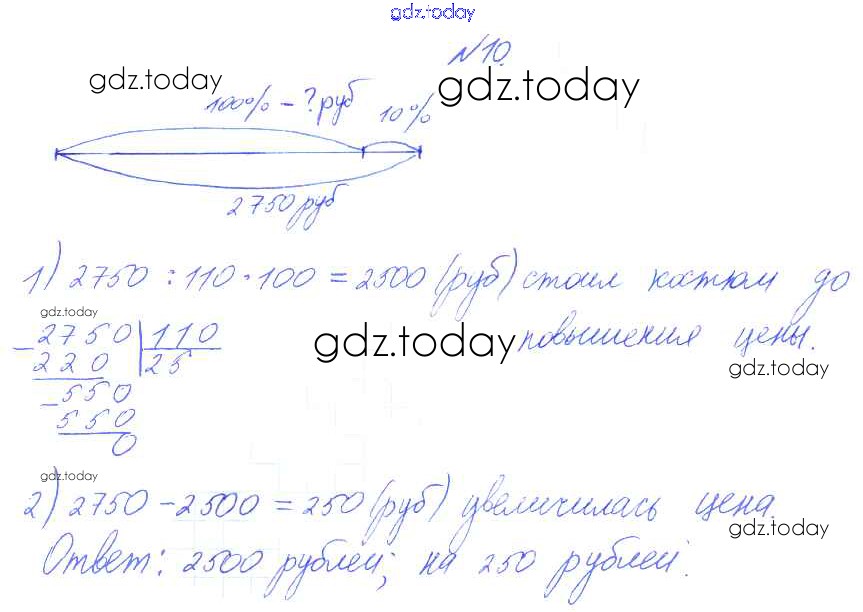 gdz.today
№10.
gdz.today
gdz.today
100% - ? руб 10%
2750 руб
1) 2750 : 110 · 100 = 2500 (руб) стоил костюм до
gdz.today
- 2750 | 110
повышения цены.
gdz.today
220 25
gdz.today
- 550
550
0
gdz.today
2) 2750 - 2500 = 250 (руб) увеличилась цена.
gdz.today
Ответ: 2500 рублей; на 250 рублей.